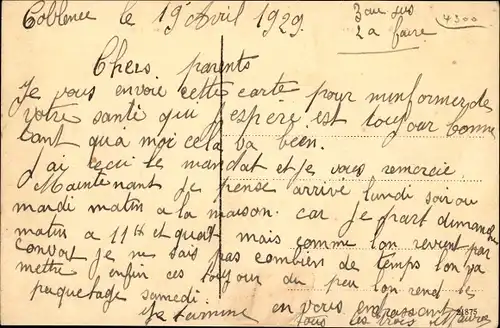 Coblence le 19 Avril 1929.
3 au jus
2 a faire
4300
Chers parents
Je vous envoie cette carte pour m'informez de
votre santé qui j'espère est toujour bonne
tant qua moi cela va bien.
j'ai reçu le mandat et je vous remercie.
Maintenant je pense arrivé lundi soir ou
mardi matin a la maison. car je part dimanche
matin a 11H et quart mais comme l'on revient par
convoit je ne sais pas combien de temps l'on va
mettre enfin ces toujour du peu l'on rend le
paquetage samedi.
Je termine en vous embrassant
tous les trois